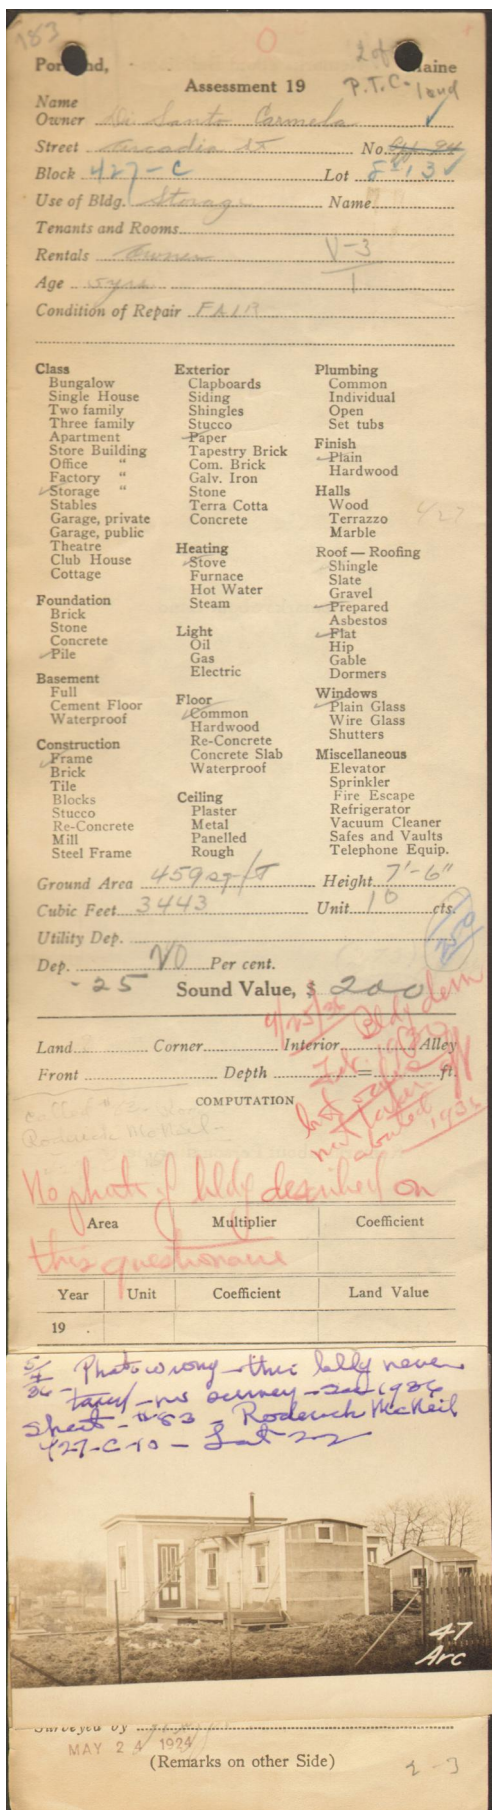 183
O
2 of
Portland, Maine
Assessment 19
P.T.C- land
Name
Owner Di Santo Carmela
Street Arcadia St No.
Block 427-C Lot 8 13
Use of Bldg. Storage Name
Tenants and Rooms
Rentals Owner V-3
Age 5 yrs 1
Condition of Repair FAIR
Class
Bungalow
Single House
Two family
Three family
Apartment
Store Building
Office "
Factory "
Storage "
Stables
Garage, private
Garage, public
Theatre
Club House
Cottage
Foundation
Brick
Stone
Concrete
Pile
Basement
Full
Cement Floor
Waterproof
Construction
Frame
Brick
Tile
Blocks
Stucco
Re-Concrete
Mill
Steel Frame
Exterior
Clapboards
Siding
Shingles
Stucco
Paper
Tapestry Brick
Com. Brick
Galv. Iron
Stone
Terra Cotta
Concrete
Heating
Stove
Furnace
Hot Water
Steam
Light
Oil
Gas
Electric
Floor
Common
Hardwood
Re-Concrete
Concrete Slab
Waterproof
Ceiling
Plaster
Metal
Panelled
Rough
Plumbing
Common
Individual
Open
Set tubs
Finish
Plain
Hardwood
Halls
Wood
Terrazzo
Marble
427
Roof — Roofing
Shingle
Slate
Gravel
Prepared
Asbestos
Flat
Hip
Gable
Dormers
Windows
Plain Glass
Wire Glass
Shutters
Miscellaneous
Elevator
Sprinkler
Fire Escape
Refrigerator
Vacuum Cleaner
Safes and Vaults
Telephone Equip.
Ground Area 459 sq ft Height 7'-6"
Cubic Feet 3443 Unit 10 cts.
Utility Dep.
Dep. NO Per cent.
-25 Sound Value, $ 200
4/25/36 Bldg dem
Land Corner Interior Alley
Front Depth = ft.
not taken
abated 1936
COMPUTATION
Roderick McNeil
No photo of bldg described on
Area Multiplier Coefficient
this questionaire
Year Unit Coefficient Land Value
19 .
5/7/36 - Photo wrong - this bldg never
taxed - no survey - see 1936
sheet - #83 - Roderick McNeil
427-C-10 - Lot 22
47
Arc
Surveyed by
MAY 24 1924
(Remarks on other Side)
2-3